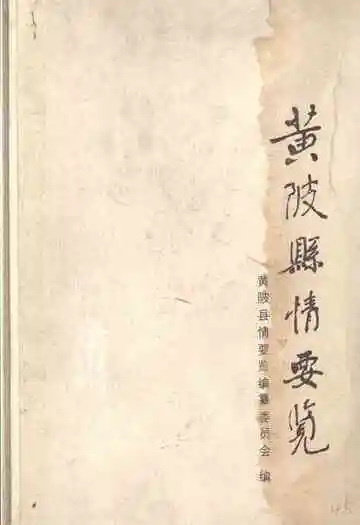 黄陂縣情要览
黄陂县情要览编纂委员会 编